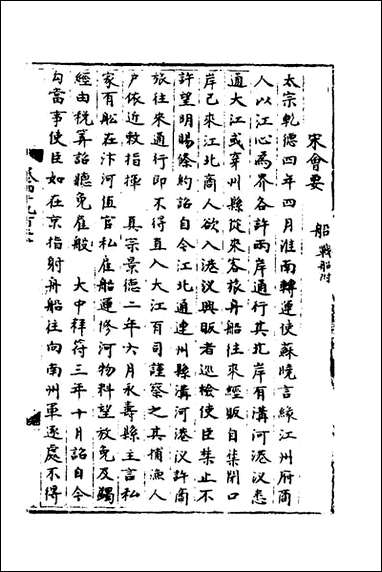 宋會要
船 戰船附
太宗乾德四年四月淮南轉運使蘇曉言緣江州府商
人以江心為界各許兩岸通行其北岸有溝河港汊悉
通大江或穿州縣從來客旅舟船往來經販自集閉口
岸已來江北商人欲入港汊興販者巡檢使臣禁止不
許望明賜條約詔自今江北通連州縣溝河港汊許商
旅往來通行即不得直入大江百司謹察之其捕漁人
户依近敕指揮 真宗景德二年六月永壽縣主言私
家有舩在汴河恆官私雇船運修河物料望放免及蠲
經由稅筭詔聽免雇般 大中祥符三年十月詔自今
勾當事使臣如在京指射舟船往向南州軍逐處不得